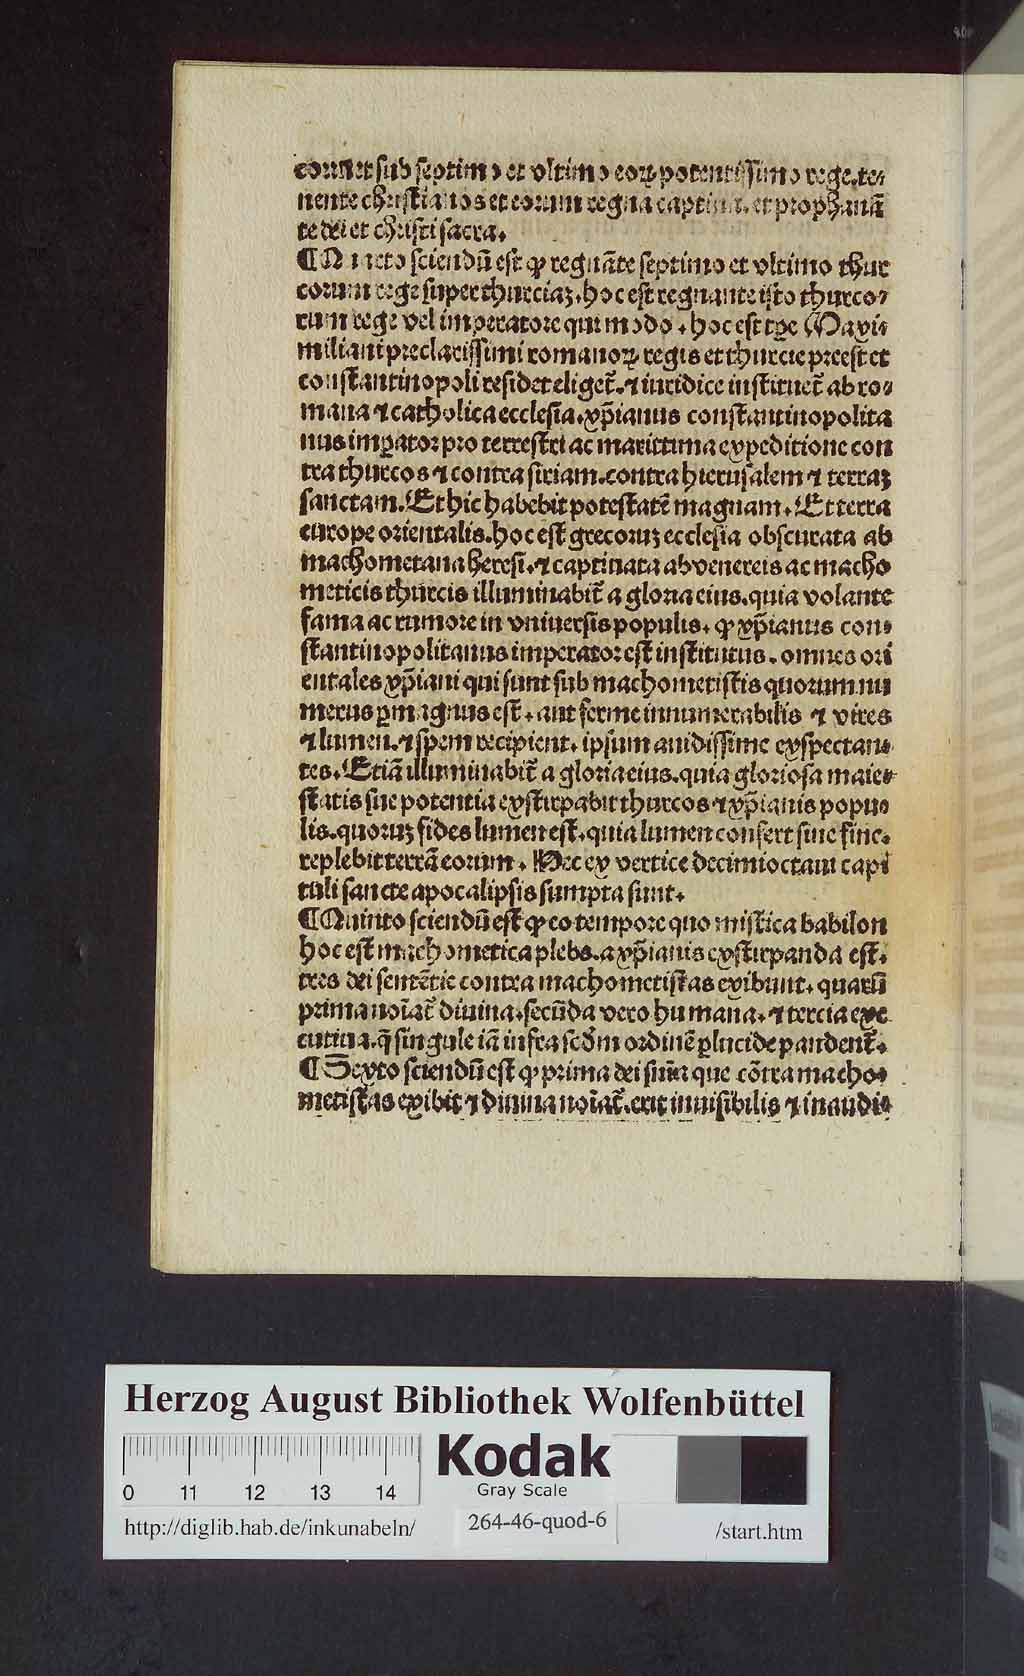 corum et sub septimo et vltimo eoꝝ potentissimo rege. te⸗
nente christianos et eorum regna captiua. et prophanā
te dei et christi sacra.
¶ Quarto sciendū est ꝙ regnāte septimo et vltimo thur
corum rege super thurciaꝫ. hoc est regnante isto thurco⸗
rum rege vel imperatore qui modo. hoc est tꝑe Maxi⸗
miliani preclarissimi romanoꝝ regis et thurcie preest et
constantinopoli residet eliget̄. ⁊ iuridice instituet̄ ab ro⸗
mana ⁊ catholica ecclesia. xp̄ianus constantinopolita
nus imꝑator pro terrestri ac marittima expeditione con
tra thurcos ⁊ contra siriam. contra hierusalem ⁊ terraꝫ
sanctam. Et hic habebit potestatē magnam. Et terra
europe orientalis. hoc est grecoruꝫ ecclesia obscurata ab
machometana heresi. ⁊ captiuata ab venereis ac macho
meticis thurcis illuminabit̄ a gloria eius. quia volante
fama ac rumore in vniuersis populis. ꝙ xp̄ianus con⸗
stantinopolitanus imperator est institutus. omnes ori
entales xp̄iani qui sunt sub machometistis quorum nu
merus ꝑmagnus est. aut ferme innumerabilis ⁊ vires
⁊ lumen. ⁊ spem recipient. ipsum auidissime expectan⸗
tes. Etiā illuminabit̄ a gloria eius. quia gloriosa maie⸗
statis sue potentia exstirpabit thurcos ⁊ xp̄ianis popu⸗
lis. quoruꝫ fides lumen est. quia lumen confert sine fine.
replebit terrā eorum. Hec ex vertice decimioctaui capi
tuli sancte apocalipsis sumpta sunt.
¶ Quinto sciendū est ꝙ eo tempore quo mistica babilon
hoc est machometica plebs. a xp̄ianis exstirpanda est.
tres dei sentētie contra machometistas exibunt. quarū
prima noīat̄ diuina. secūda vero humana. ⁊ tercia exe
cutiua. q̄ singule iā infra scd̄m ordinē ꝑlucide pandent̄.
¶ Sexto sciendū est ꝙ prima dei sn̄ia que cōtra macho⸗
metistas exibit ⁊ diuina noīat̄. erit inuisibilis ⁊ inaudi⸗
Herzog August Bibliothek Wolfenbüttel
0 11 12 13 14
Kodak
Gray Scale
http://diglib.hab.de/inkunabeln/
264-46-quod-6
/start.htm